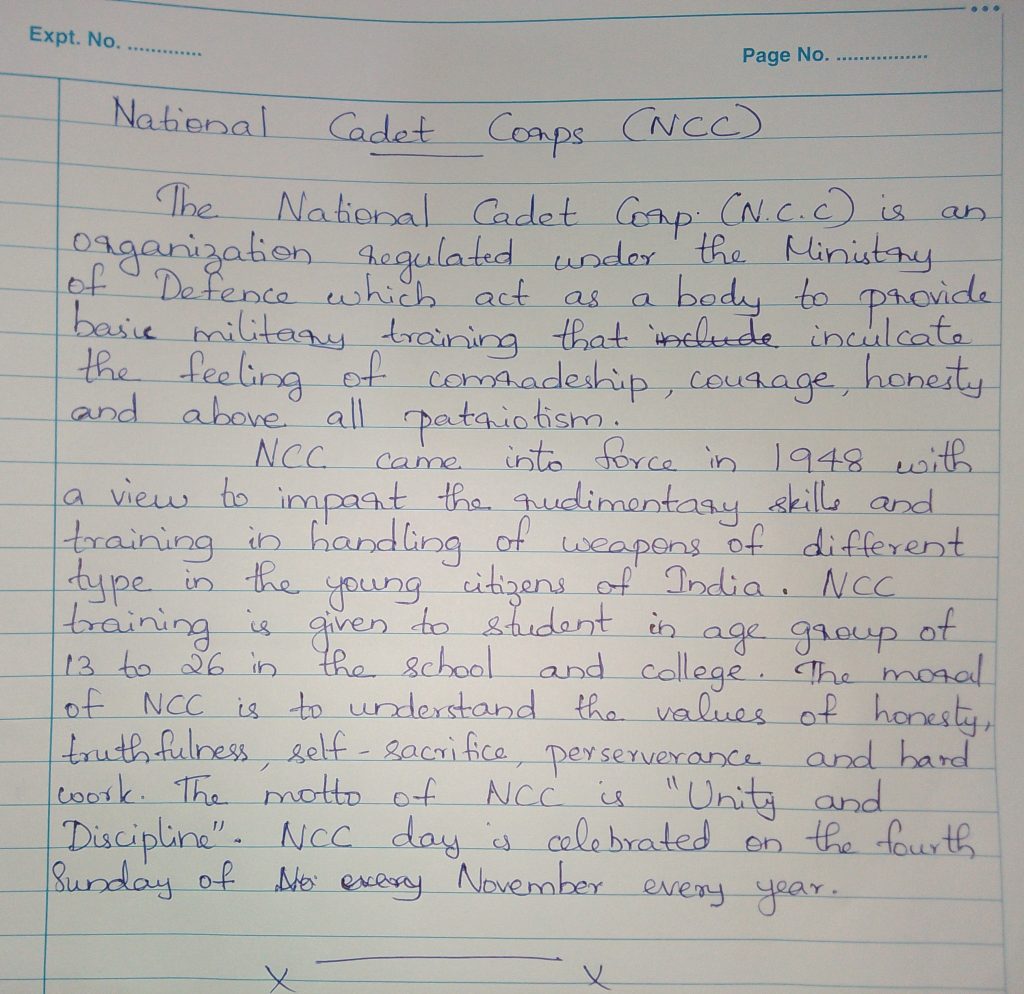 Expt. No. .............
Page No. ................
National Cadet Corps (NCC)
The National Cadet Corp. (N.C.C) is an
organization regulated under the Ministry
of Defence which act as a body to provide
basic military training that include inculcate
the feeling of comradeship, courage, honesty
and above all patriotism.
NCC came into force in 1948 with
a view to impart the rudimentary skills and
training in handling of weapons of different
type in the young citizens of India. NCC
training is given to student in age group of
13 to 26 in the school and college. The moral
of NCC is to understand the values of honesty,
truthfulness, self-sacrifice, perserverance and hard
work. The motto of NCC is "Unity and
Discipline". NCC day is celebrated on the fourth
Sunday of No every November every year.
x x